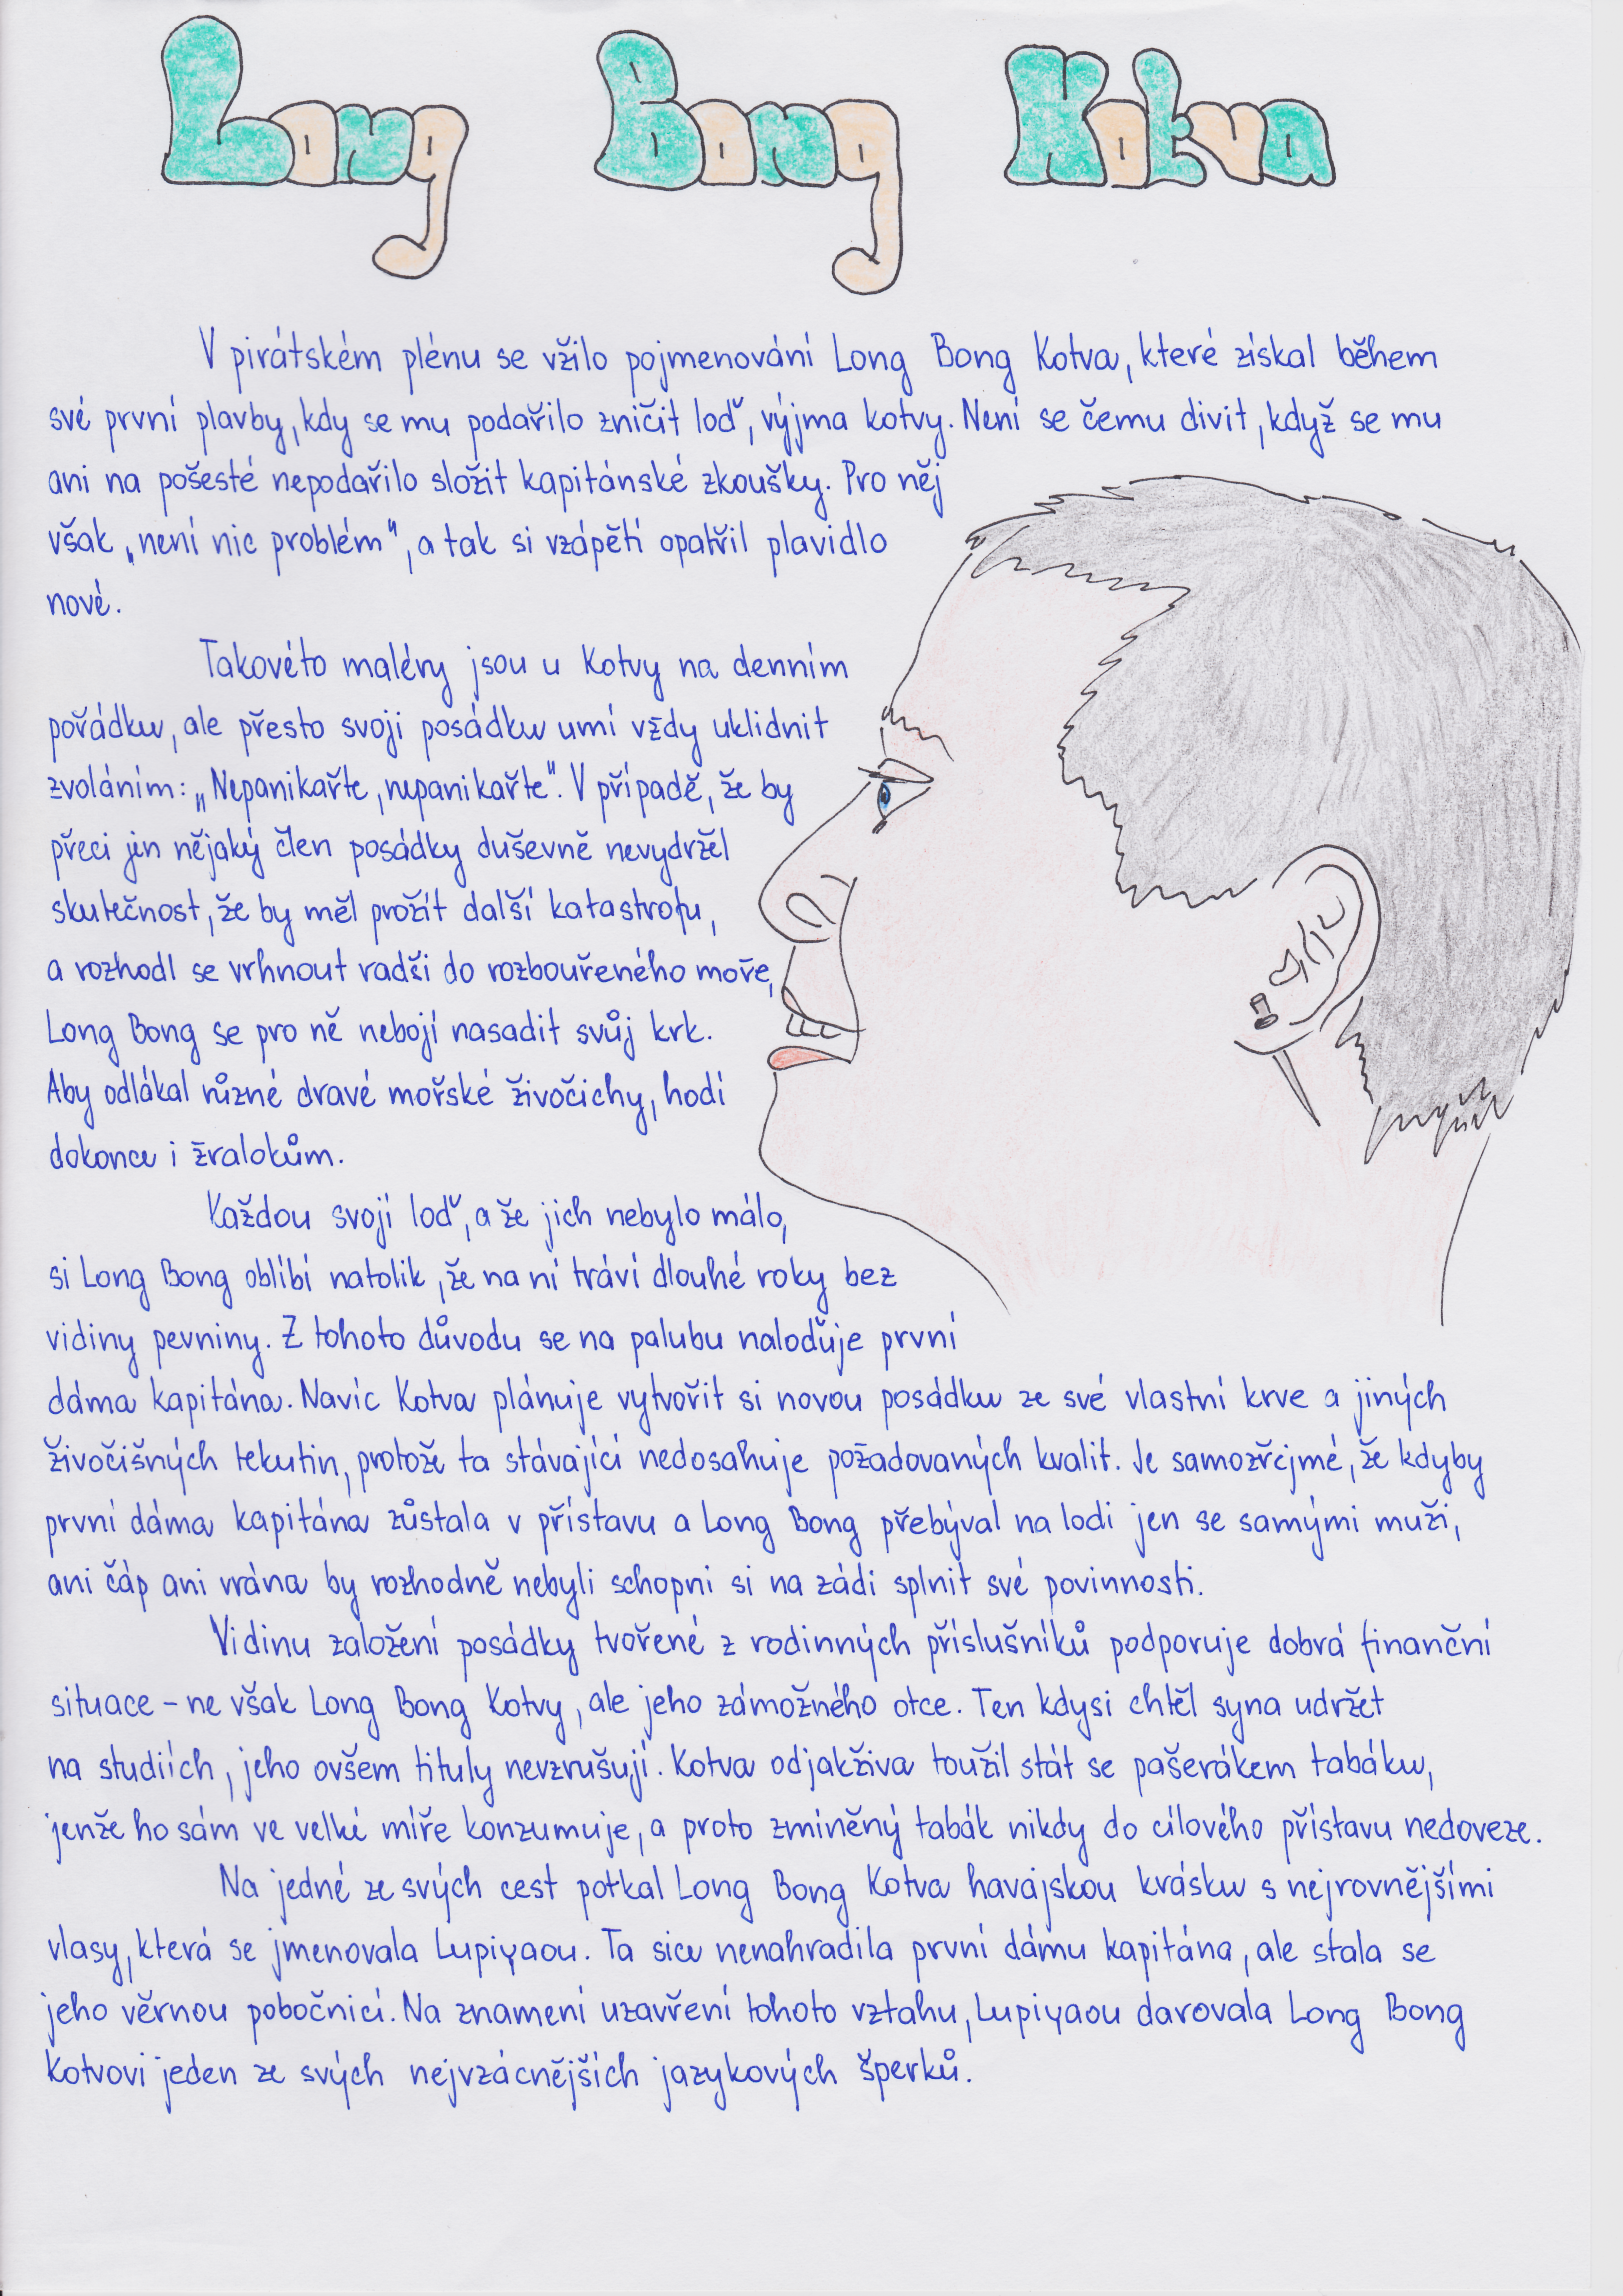 Long Bong Kotva
V pirátském plénu se vžilo pojmenování Long Bong Kotva, které získal během
své první plavby, kdy se mu podařilo zničit loď, výjma kotvy. Není se čemu divit, když se mu
ani na pošesté nepodařilo složit kapitánské zkoušky. Pro něj
však „není nic problém", a tak si vzápětí opatřil plavidlo
nové.
Takovéto maléry jsou u Kotvy na denním
pořádku, ale přesto svoji posádku umí vždy uklidnit
zvoláním: „Nepanikařte, nepanikařte". V případě, že by
přeci jen nějaký člen posádky duševně nevydržel
skutečnost, že by měl prožít další katastrofu,
a rozhodl se vrhnout radši do rozbouřeného moře,
Long Bong se pro ně nebojí nasadit svůj krk.
Aby odlákal různé dravé mořské živočichy, hodí
dokonce i žralokům.
Každou svoji loď, a že jich nebylo málo,
si Long Bong oblíbí natolik, že na ní tráví dlouhé roky bez
vidiny pevniny. Z tohoto důvodu se na palubu naloďuje první
dáma kapitána. Navíc Kotva plánuje vytvořit si novou posádku ze své vlastní krve a jiných
živočišných tekutin, protože ta stávající nedosahuje požadovaných kvalit. Je samozřejmé, že kdyby
první dáma kapitána zůstala v přístavu a Long Bong přebýval na lodi jen se samými muži,
ani čáp ani vrána by rozhodně nebyli schopni si na zádi splnit své povinnosti.
Vidinu založení posádky tvořené z rodinných příslušníků podporuje dobrá finanční
situace – ne však Long Bong Kotvy, ale jeho zámožného otce. Ten kdysi chtěl syna udržet
na studiích, jeho ovšem tituly nevzrušují. Kotva odjakživa toužil stát se pašerákem tabáku,
jenže ho sám ve velké míře konzumuje, a proto zmíněný tabák nikdy do cílového přístavu nedoveze.
Na jedné ze svých cest potkal Long Bong Kotva havajskou krásku s nejrovnějšími
vlasy, která se jmenovala Lupiyaou. Ta sice nenahradila první dámu kapitána, ale stala se
jeho věrnou pobočnicí. Na znamení uzavření tohoto vztahu, Lupiyaou darovala Long Bong
Kotvovi jeden ze svých nejvzácnějších jazykových šperků.